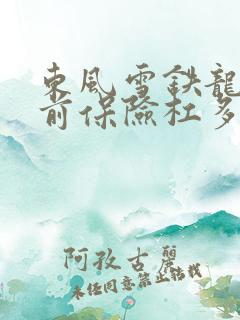 東風雪鉄龍
前保險杠多
阿孜古麗
未经同意禁止转载